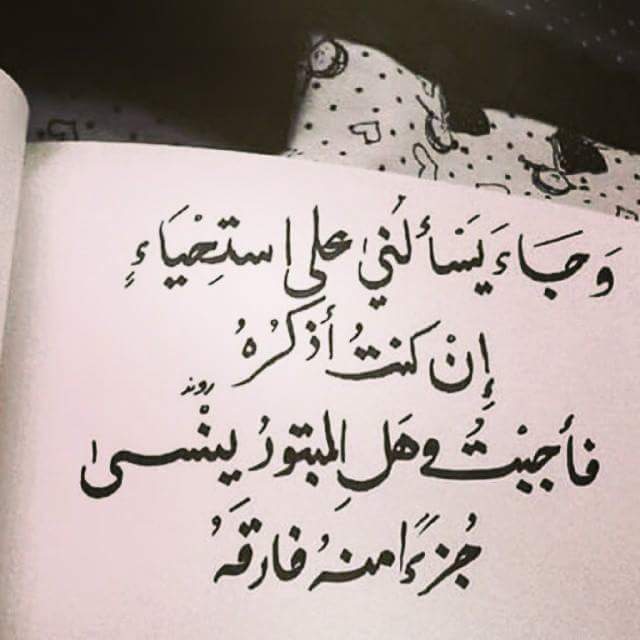 وَجَاءَ يَسْألُني على استِحْيَاءٍ
إِنْ كنتُ أذكُرُهُ
روند
فأجبْتُ وهَلِ المبتورُ ينْسى
جُزءًا منهُ فارقَهُ